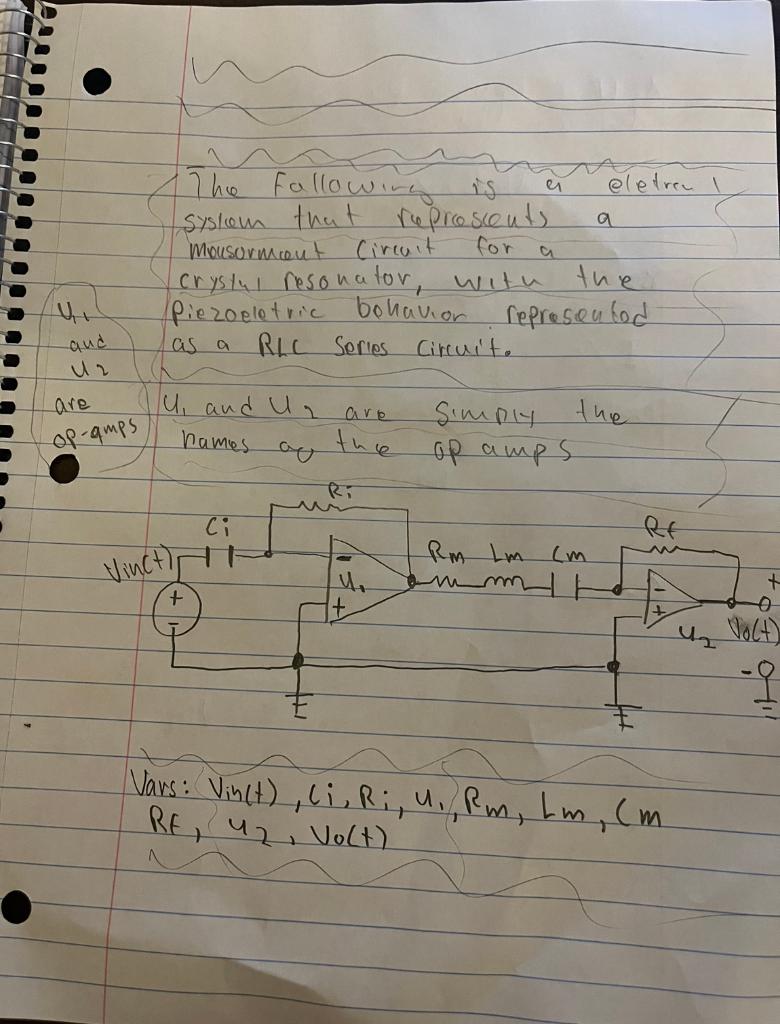 The Following is a eletrcal
system that represents a
mousorment circuit for a
crystal resonator, with the
piezoeletric behavior represented
as a RLC Series Circuit.
U1
and
U2
are
op-amps
U1 and U2 are simply the
names og the op amps
Ri
Ci
Vin(t)
+
-
-
U1
+
Rm Lm Cm
Rf
-
+
U2
+
Vo(t)
-
Vars: Vin(t), Ci, Ri, U1, Rm, Lm, Cm
Rf, U2, Vo(t)